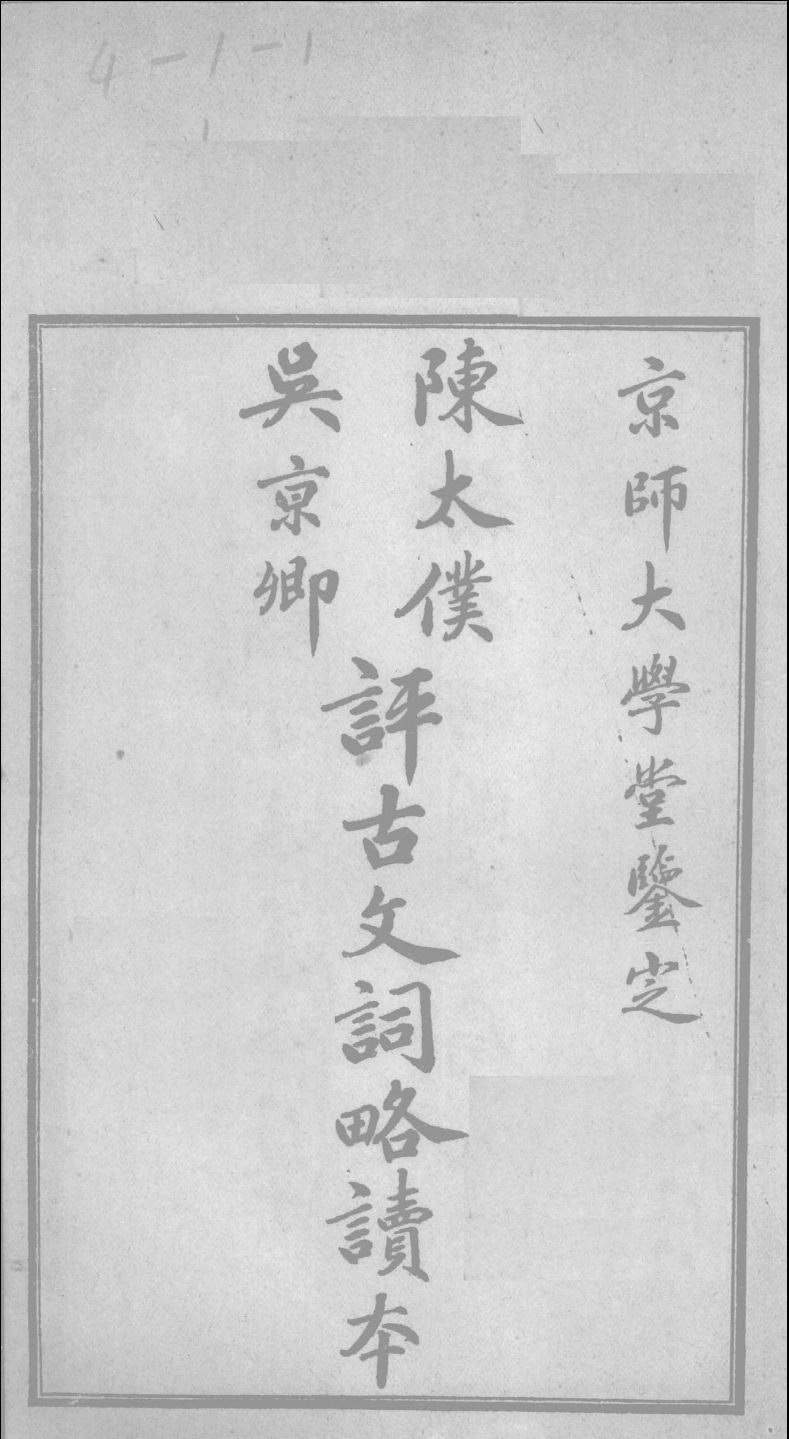 4-1-1
京師大學堂鑒定
陳太僕
吳京卿
評古文詞略讀本